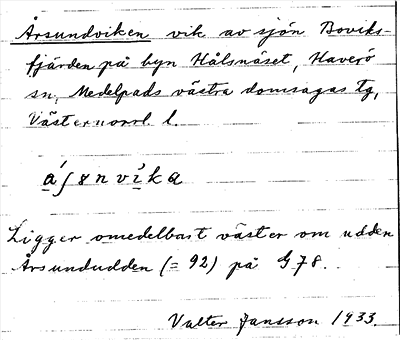 Årsundviken vik av sjön Boviks-
fjärden på byn Hålsnäset, Haverö
sn, Medelpads västra domsagas tg,
Västernorrl. l.
a̱ʹʃsnvi̱ʹka
Ligger omedelbart väster om udden
Årsundudden (= 92) på G78.
Valter Jansson 1933.